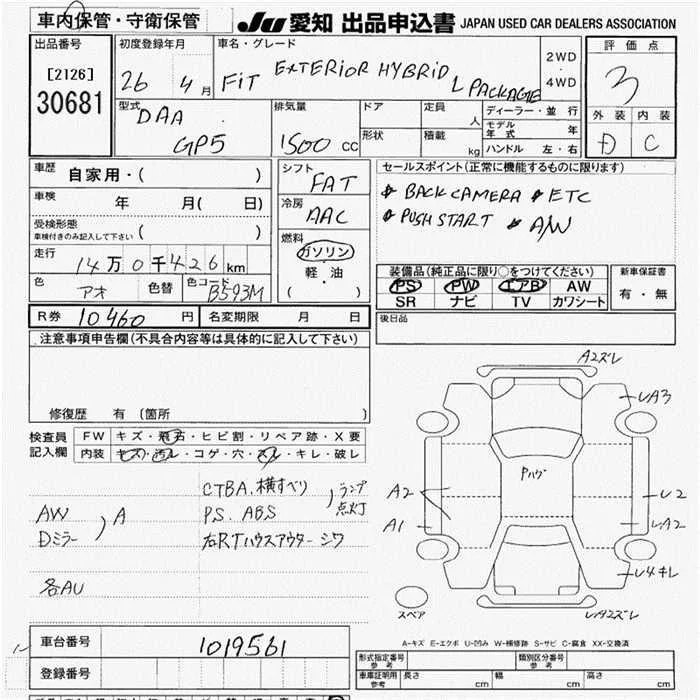 車内保管・守衛保管
JU 愛知 出品申込書 JAPAN USED CAR DEALERS ASSOCIATION
出品番号
[2126]
30681
初度登録年月
26 4月
車名・グレード
FiT EXTERIOR HYBRiD L PACKAGE
2WD
4WD
評価点
3
外装 内装
D C
型式
DAA
GP5
排気量
1500 cc
ドア
形状
定員
人
積載
kg
ディーラー・並行
モデル年式 年
ハンドル 左・右
車歴
自家用・( )
車検
年 月( 日)
受検形態
車検付きのみ記入して下さい ( )
走行
14万0千426km
色
アオ
色替
色コード
B593M
シフト
FAT
冷房
AAC
燃料
ガソリン
軽・油
( )
セールスポイント(正常に機能するものに限ります)
BACK CAMERA ETC
PUSH START A/W
装備品(純正品に限り○をつけてください)
PS PW エアB AW
SR ナビ TV カワシート
新車保証書
有・無
後日品
R券 10460 円
名変期限 月 日
注意事項申告欄(不具合内容等は具体的に記入して下さい)
修復歴 有(箇所 )
検査員
記入欄
FW キズ・飛石・ヒビ割・リペア跡・X要
内装 キズ・汚レ・コゲ・穴・スレ・キレ・破レ
AW
Dミラー
) A
各AU
CTBA.横すべり
P.S. ABS
) ランプ点灯
右RTハウスアウターシワ
A2ズレ
UA3
Pハゲ
A2
A1
U2
UA2
U4キレ
UA2ズレ
スペア
A-キズ E-エクボ U-凹み W-補修跡 S-サビ C-腐食 XX-交換済
車台番号
1019561
登録番号
形式指定番号
参考
類別区分番号
参考
車庫証明用
参考
長さ cm
幅 cm
高さ cm